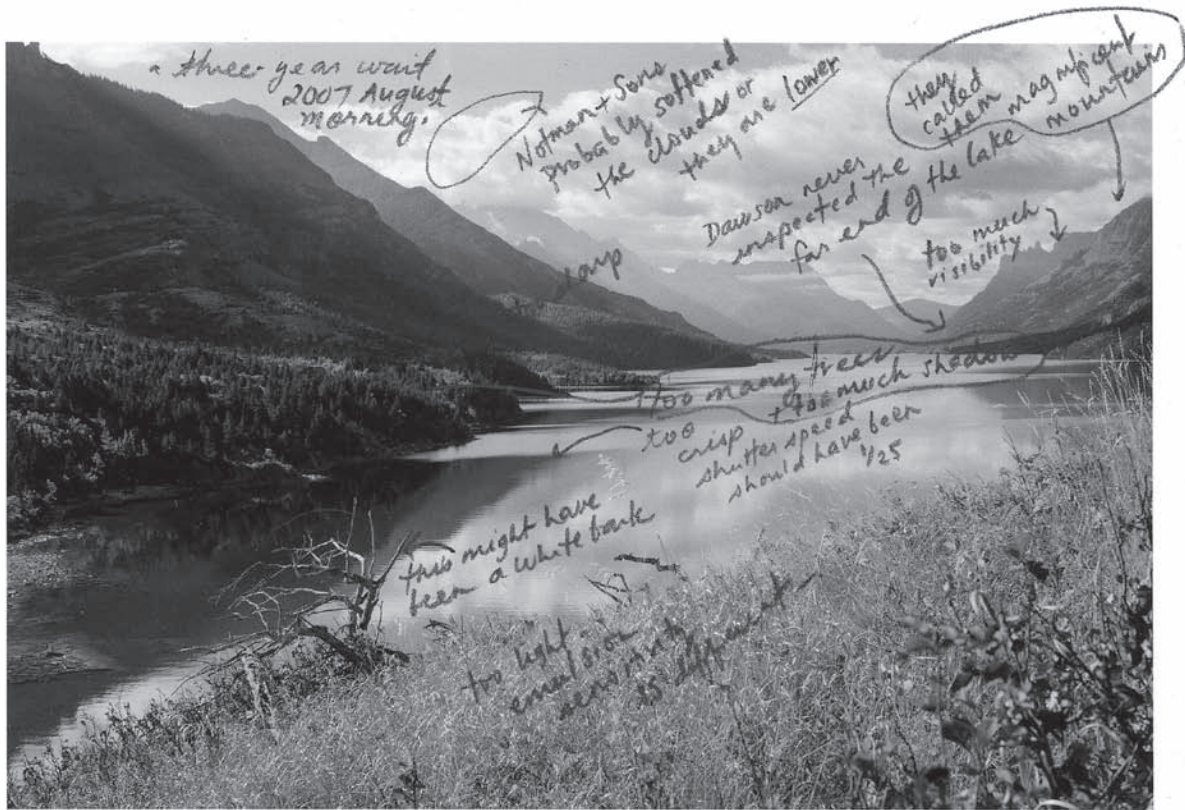 a three-year wait
2007 August
morning.
Notman + Sons
probably softened
the clouds or
they are lower
they
called
them magnificent
mountains
Dawson never
inspected the
far end of the lake
too much
visibility
too many trees
+ too much shadow
too
crisp
shutter speed
should have been
1/25
this might have
been a whitebark
too light
emulsion
sensitivity
is different